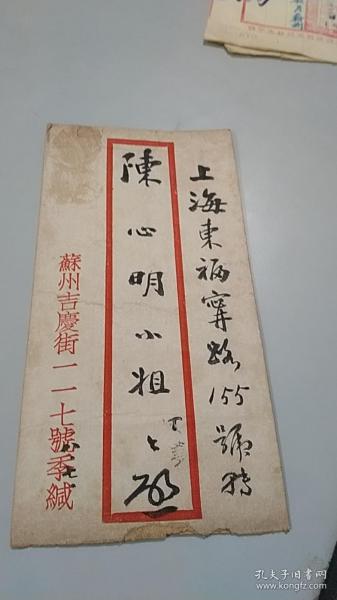 上海東福寧路155號轉
陳心明小姐公啟
蘇州吉慶街一一七號季緘
孔夫子旧书网
www.kongfz.com